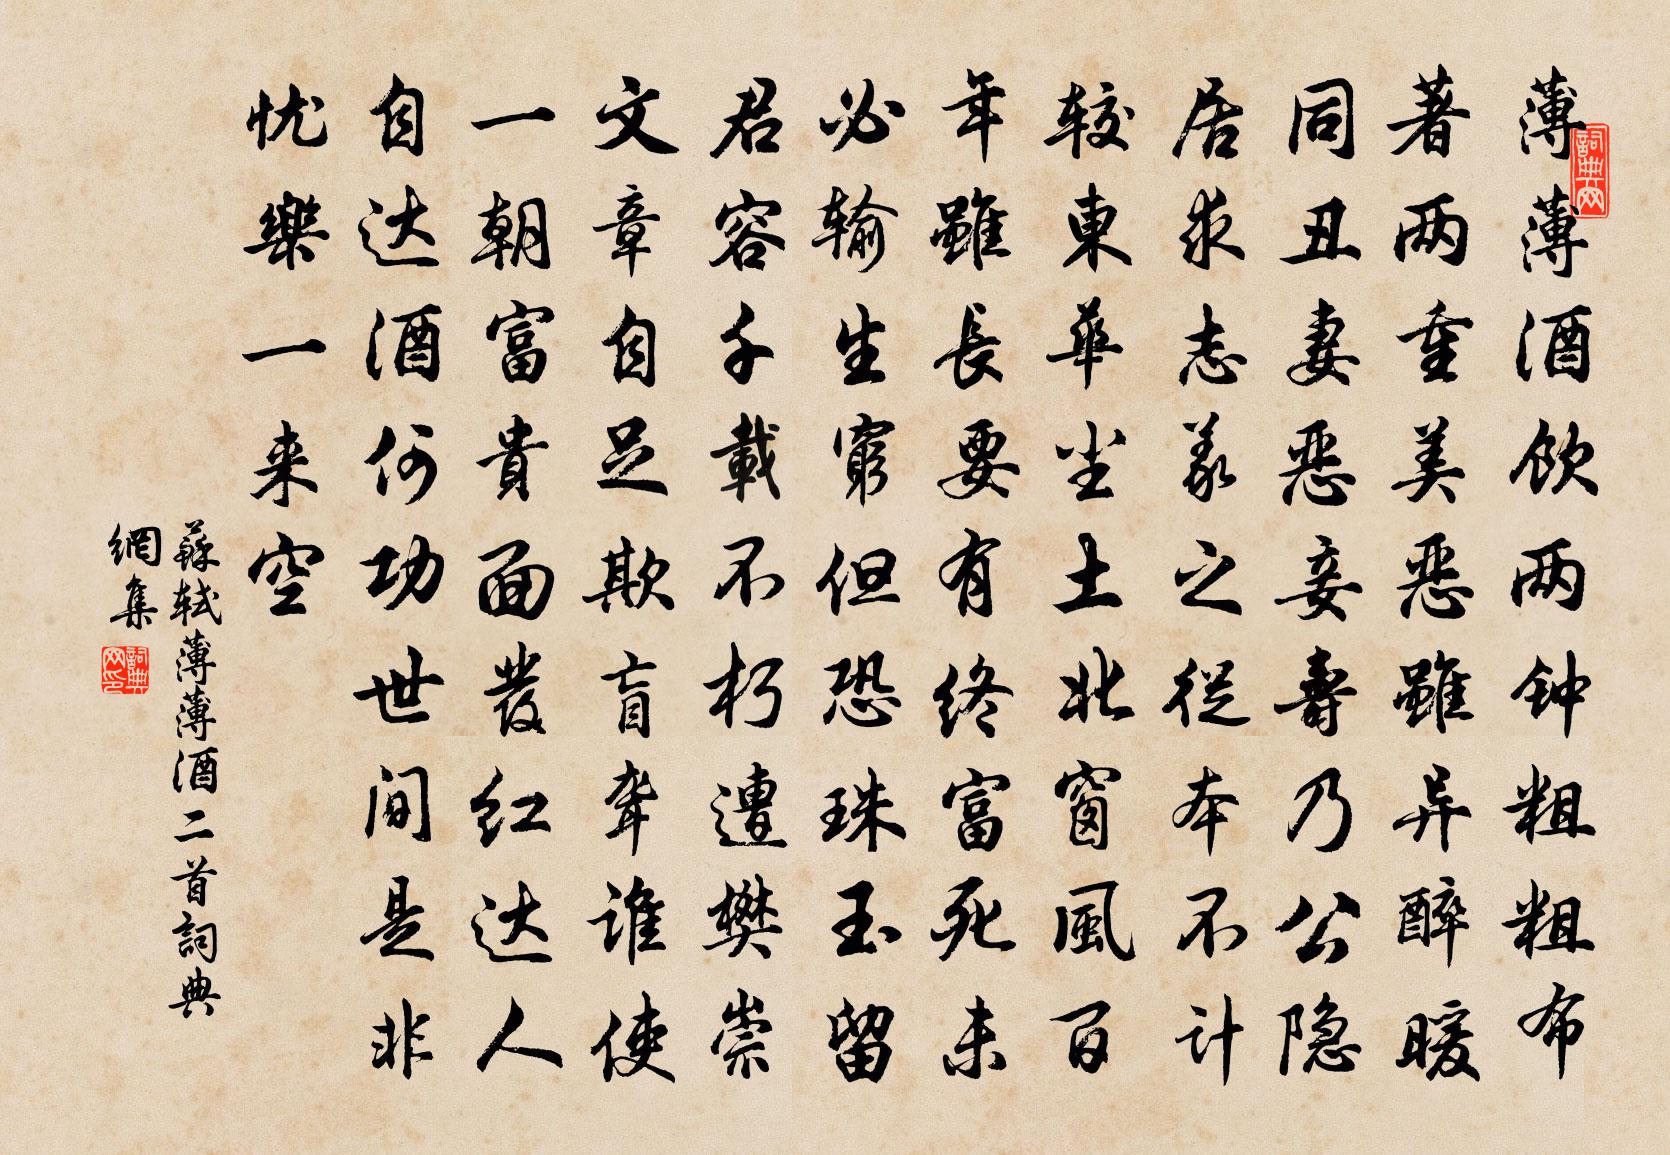 薄薄酒饮两钟粗粗布
著两重美恶雖异醉暖
同丑妻恶妾壽乃公隐
居求志義之從本不计
较東華尘土北窗風百
年雖長要有终富死未
必输生窮但恐珠玉留
君容千載不朽遭樊崇
文章自足欺盲聋谁使
一朝富貴面發红达人
自达酒何功世间是非
忧樂一来空
蘇轼薄薄酒二首詞典
網集
詞典网
詞典网印